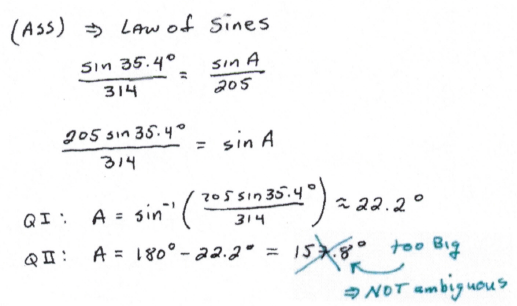 (ASS) ⇒ Law of Sines
sin 35.4° / 314 = sin A / 205
205 sin 35.4° / 314 = sin A
QI: A = sin⁻¹ ( 205 sin 35.4° / 314 ) ≈ 22.2°
QII: A = 180° - 22.2° = 157.8° too Big
⇒ NOT ambiguous